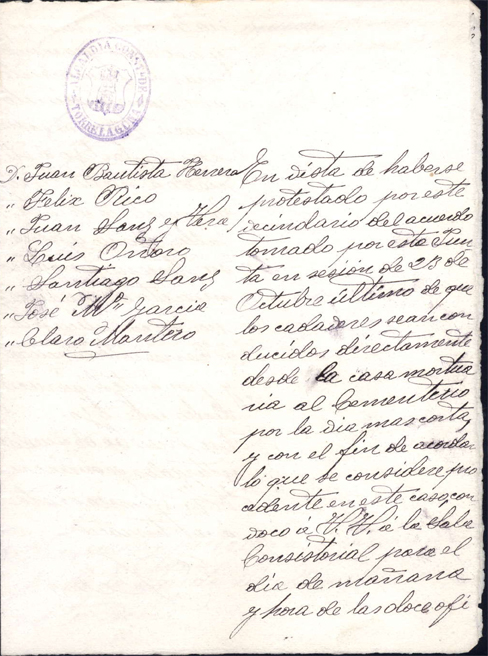 ALCALDIA CONST. DE
TORRELAGUNA
D. Juan Bautista Herrera
" Felix Rico
" Juan Sanz y Vera
" Luis Ontoro
" Santiago Sanz
" José Mª Garcia
" Claro Montero
En vista de haberse
protestado por este
vecundario del acuerdo
tomado por esta Jun
ta en sesión de 23 de
Octubre último de que
los cadaveres sean con
ducidos directamente
desde la casa mortua
ria al Cementerio
por la via mas corta,
y con el fin de acordar
lo que se considere pro
cedente en este caso, con
voco á V.V. á la Sala
Consistorial para el
dia de mañana
y hora de las doce, ofi